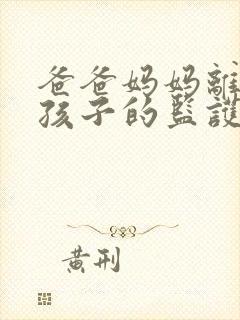 爸爸妈妈離
孩子的監護
黄刑